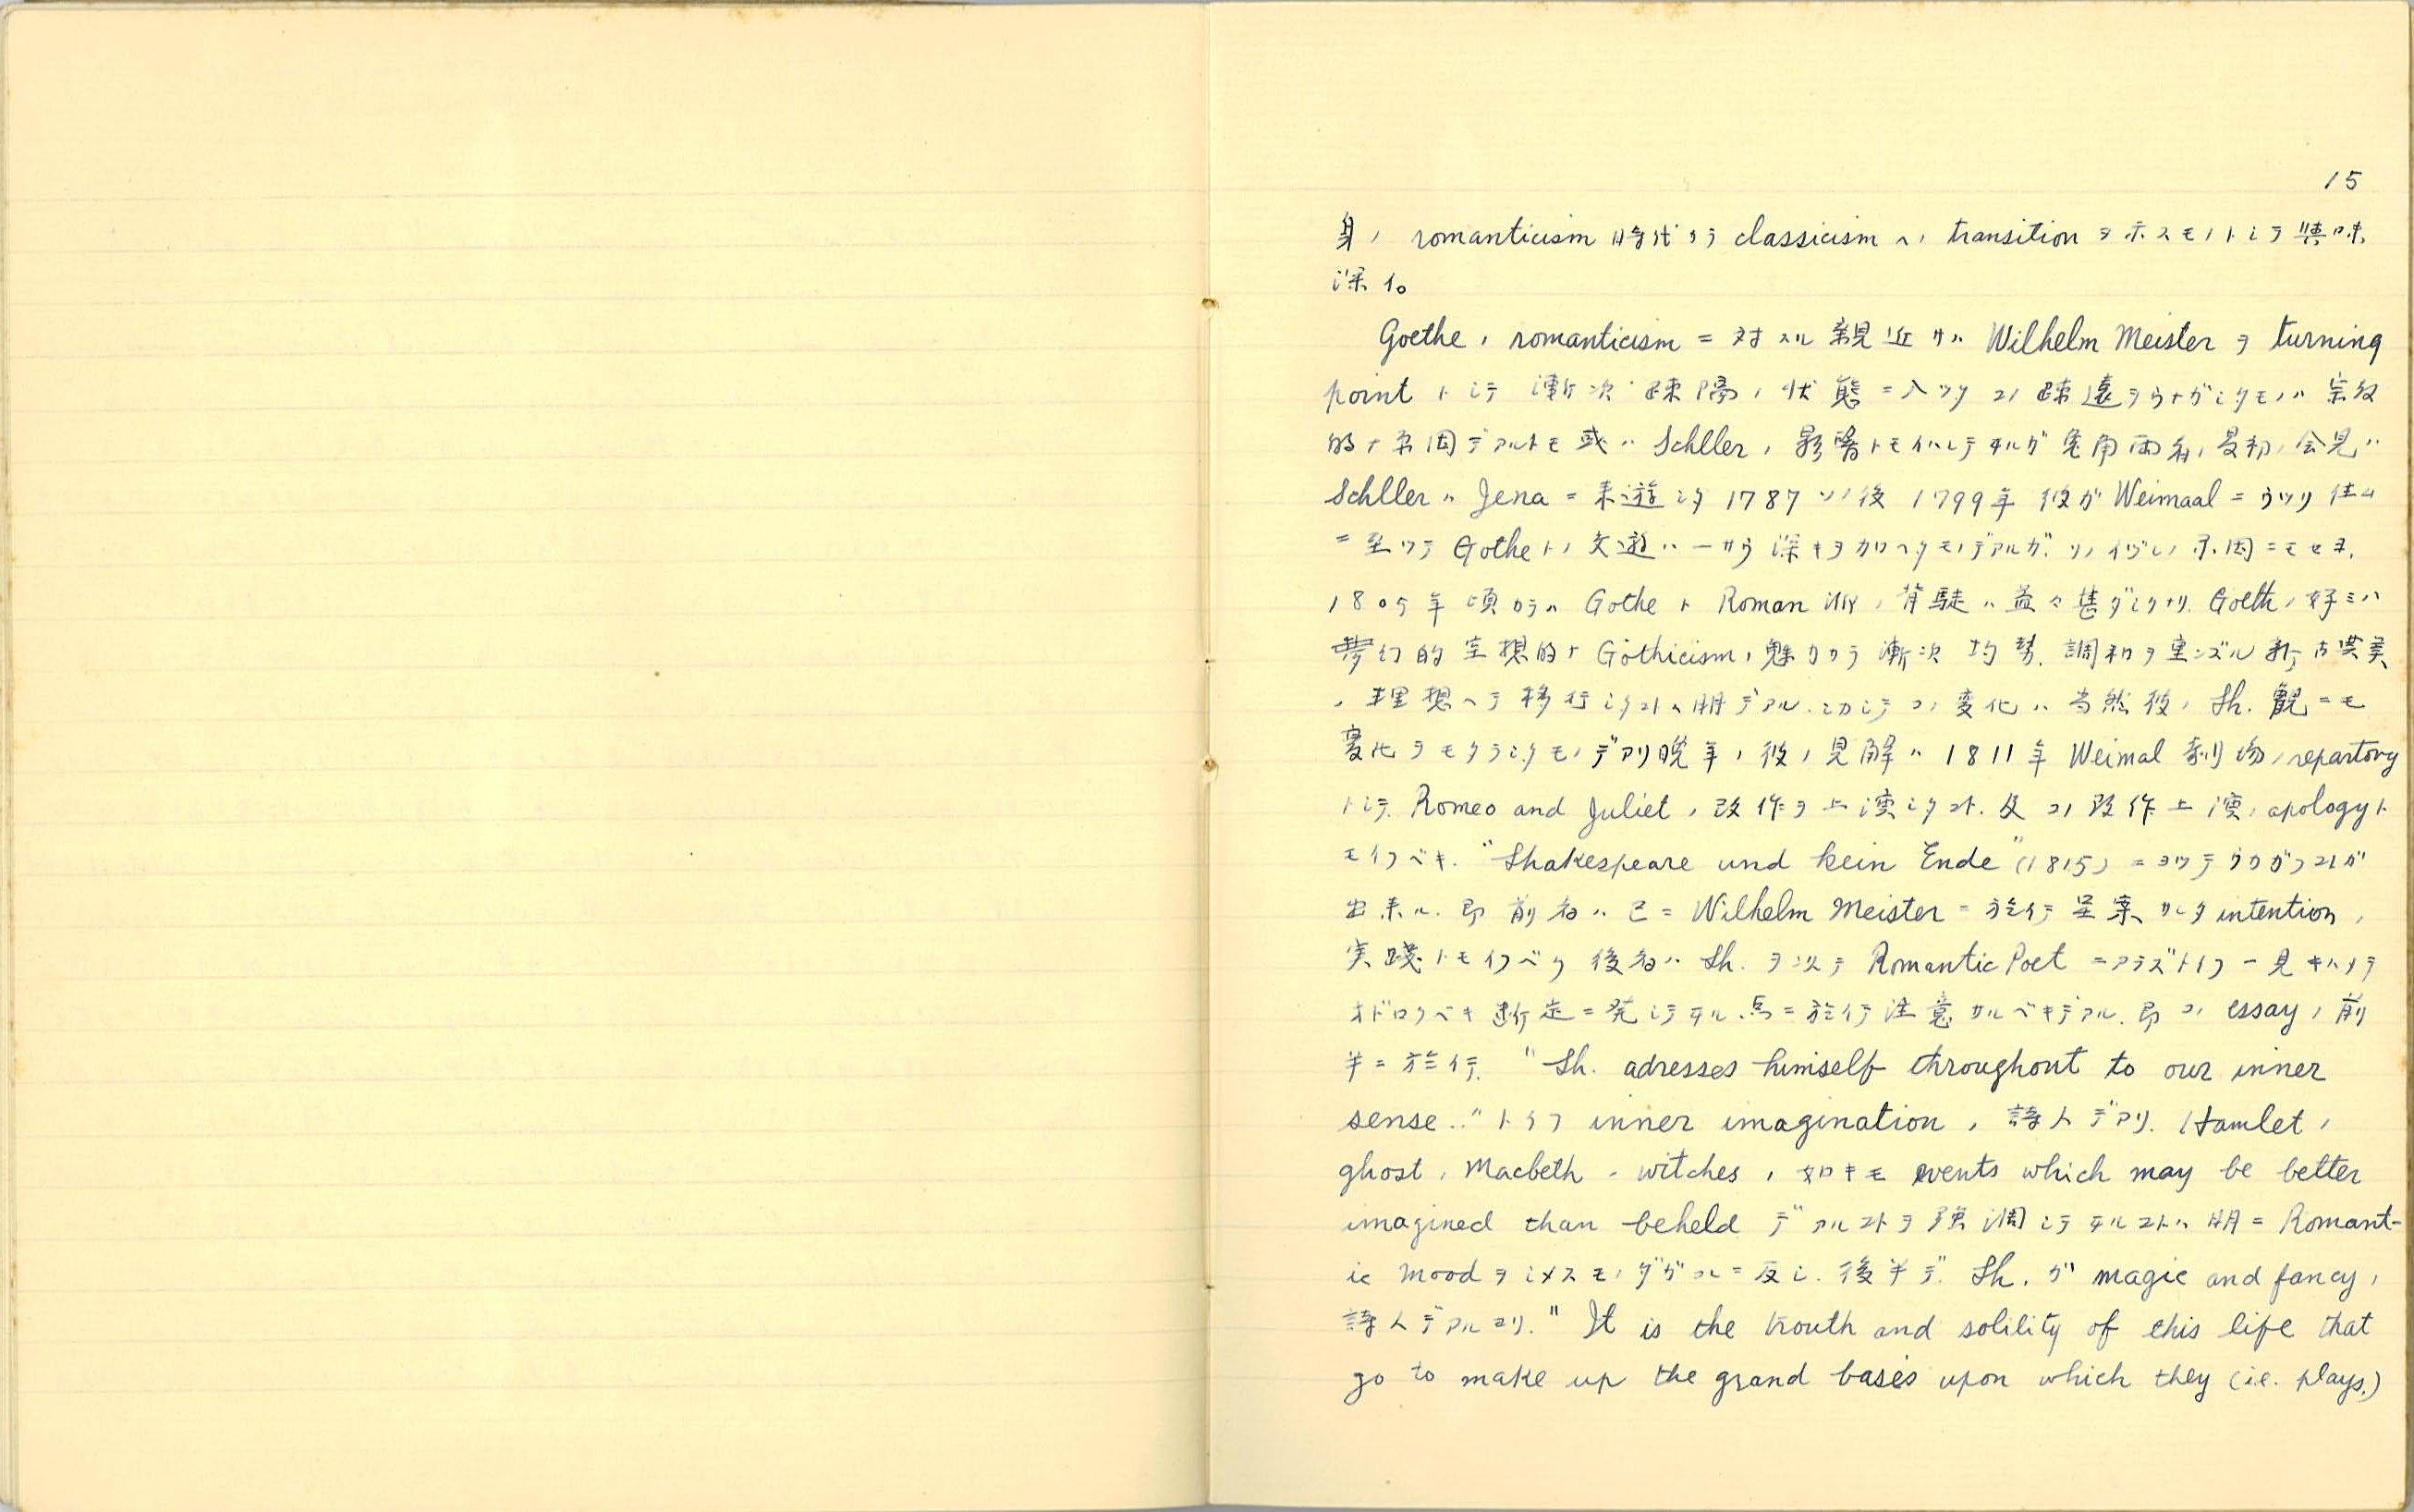 15
身ノ romanticism 時代カラ classicism ヘノ transition ヲ示スモノトシテ興味
深イ。
Goethe ノ romanticism ニ対スル親近サハ Wilhelm Meister ヲ turning
point トシテ 漸次 疎隔ノ状態ニ入ツタ コノ疎遠ヲウナガシタモノハ 宗教
的ナ原因デアルトモ或ハ Schller ノ影響トモイハレテヰルガ 兎角両者ノ最初ノ会見ハ
Schller ハ Jena ニ来遊シタ 1787 ソノ後 1799年 彼ガ Weimaal ニウツリ住ム
ニ至ツテ Gothe トノ交遊ハ一サウ深キヲカロヘタモノデアルガ. ソノイヅレノ原因ニモセヨ.
1805年頃カラハ Gothe ト Roman 派ノ背馳ハ益々甚ダシクナリ. Goeth ノ好ミハ
夢幻的空想的ナ Gothicism ノ魅力カラ漸次 均勢. 調和ヲ重ンズル新古典美
ノ理想ヘテ移行シタコトハ明デアル. シカシテコノ変化ハ当然彼ノ Sh. 観ニモ
変化ヲモタラシタモノデアリ晩年ノ彼ノ見解ハ 1811年 Weimal 劇場ノ repartory
トシテ. Romeo and Juliet ノ改作ヲ上演シタコト. 及コノ改作上演ノ apology ト
モイフベキ. "Shakespeare und kein Ende" (1815) ニヨツテウカガフコトガ
出来ル. 即前者ハ已ニ Wilhelm Meister ニ於イテ呈案サレタ intention ノ
実践トモイフベク後者ハ Sh. ヲ以テ Romantic Poet ニアラズトイフ一見キハメテ
オドロクベキ断定ニ発シテヰル点ニ於イテ注意サルベキデアル. 即コノ essay ノ前
半ニ於イテ. "Sh. adresses himself throughout to our inner
sense.." トイフ inner imagination ノ詩人デアリ. Hamlet ノ
ghost ノ Macbeth ノ witches ノ如キモ events which may be better
imagined than beheld デアルコトヲ強調シテヰルコトハ明ニ Romant-
ic mood ヲシメスモノダガコレニ反シ. 後半デ. Sh. ガ magic and fancy ノ
詩人デアルヨリ. "It is the trouth and solility of this life that
go to make up the grand bases upon which they (i.e. plays.)